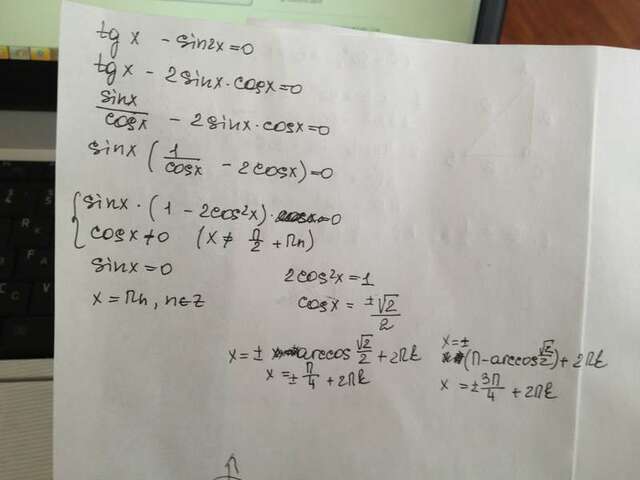 tg x - sin2x = 0
tg x - 2 sinx · cosx = 0
sinx/cosx - 2 sinx · cosx = 0
sinx (1/cosx - 2cosx) = 0
{ sinx · (1 - 2cos²x) · = 0
cosx ≠ 0 (x ≠ П/2 + Пn)
sinx = 0
x = Пn, n ∈ Z
2cos²x = 1
cosx = ±√2/2
x = ± arccos √2/2 + 2Пk
x = ± П/4 + 2Пk
x = ±
(П - arccos √2/2) + 2Пk
x = ± 3П/4 + 2Пk